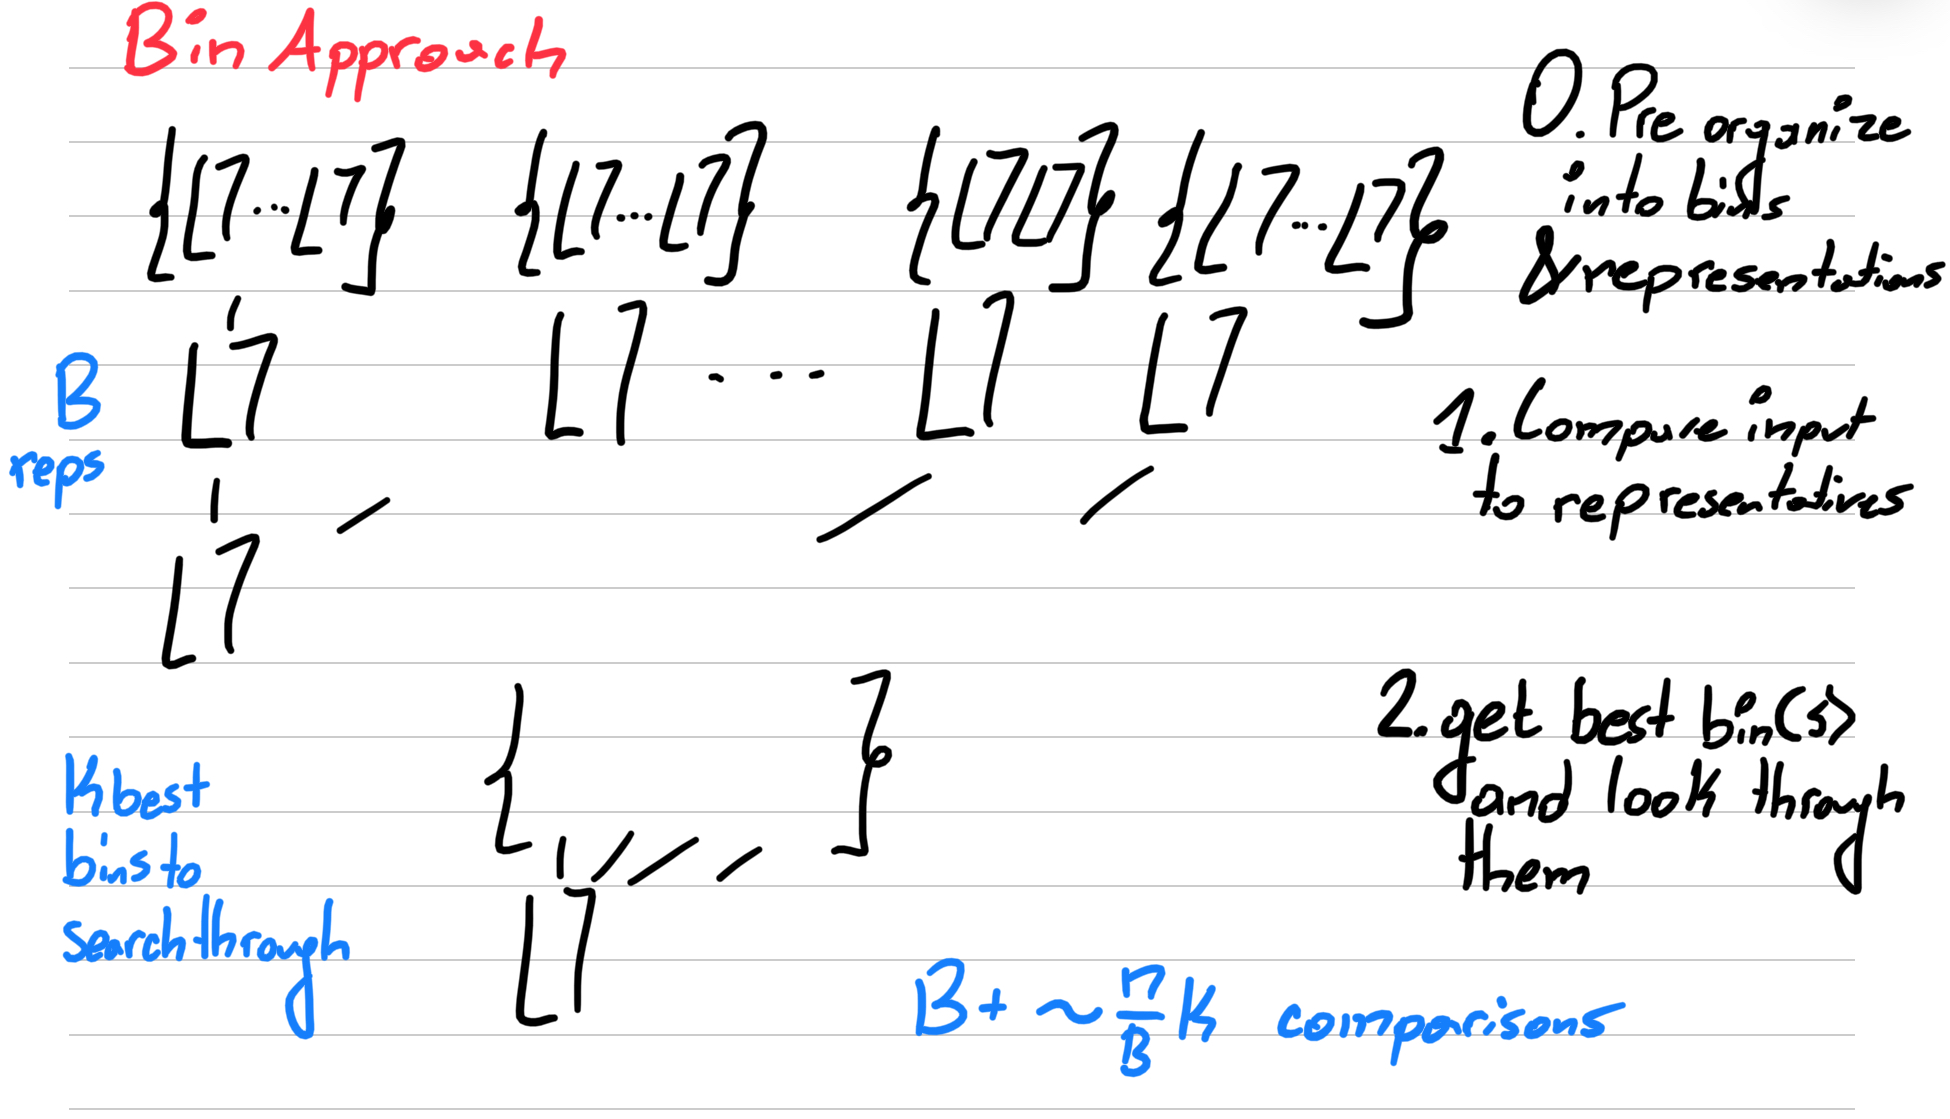 Bin Approach
0. Pre organize
into bins
& representations
B
reps
1. Compare input
to representatives
2. get best bin(s)
and look through
them
K best
bins to
search through
B + ~ n/B K comparisons